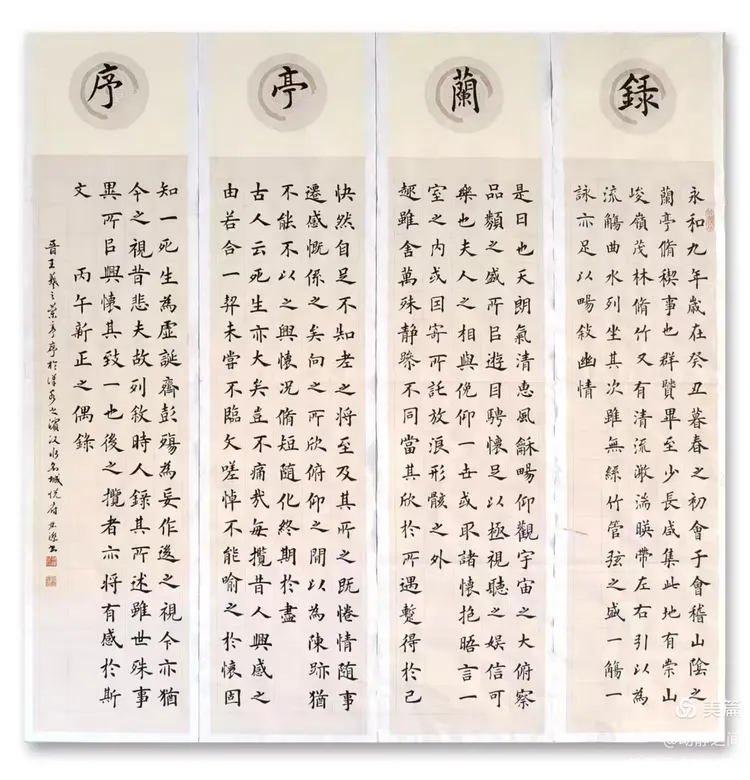 錄
永和九年歲在癸丑暮春之初會于會稽山陰之
蘭亭脩稧事也群賢畢至少長咸集此地有崇山
峻嶺茂林脩竹又有清流激湍暎帶左右引以為
流觴曲水列坐其次雖無絲竹管弦之盛一觴一
詠亦足以暢敘幽情
蘭
是日也天朗氣清惠風龢暢仰觀宇宙之大俯察
品類之盛所㠯遊目騁懷足以極視聽之娛信可
樂也夫人之相與俛仰一世或取諸懷抱晤言一
室之內或因寄所託放浪形骸之外
趣雖舍萬殊静躁不同當其欣於所遇暫得於己
亭
快然自足不知老之將至及其所之既惓情隨事
遷感慨係之矣向之所欣俯仰之閒以為陳跡猶
不能不以之興懷况脩短隨化終期於盡
古人云死生亦大矣豈不痛哉每攬昔人興感之
由若合一契未嘗不臨文嗟悼不能喻之於懷固
序
知一死生為虛誕齊彭殤為妄作後之視今亦猶
今之視昔悲夫故列敘時人錄其所述雖世殊事
異所㠯興懷其致一也後之攬者亦將有感於斯
文 丙午新正之偶錄
晋王羲之蘭亭序於漢水之濱汉水名城悦府
美篇
@动静之间